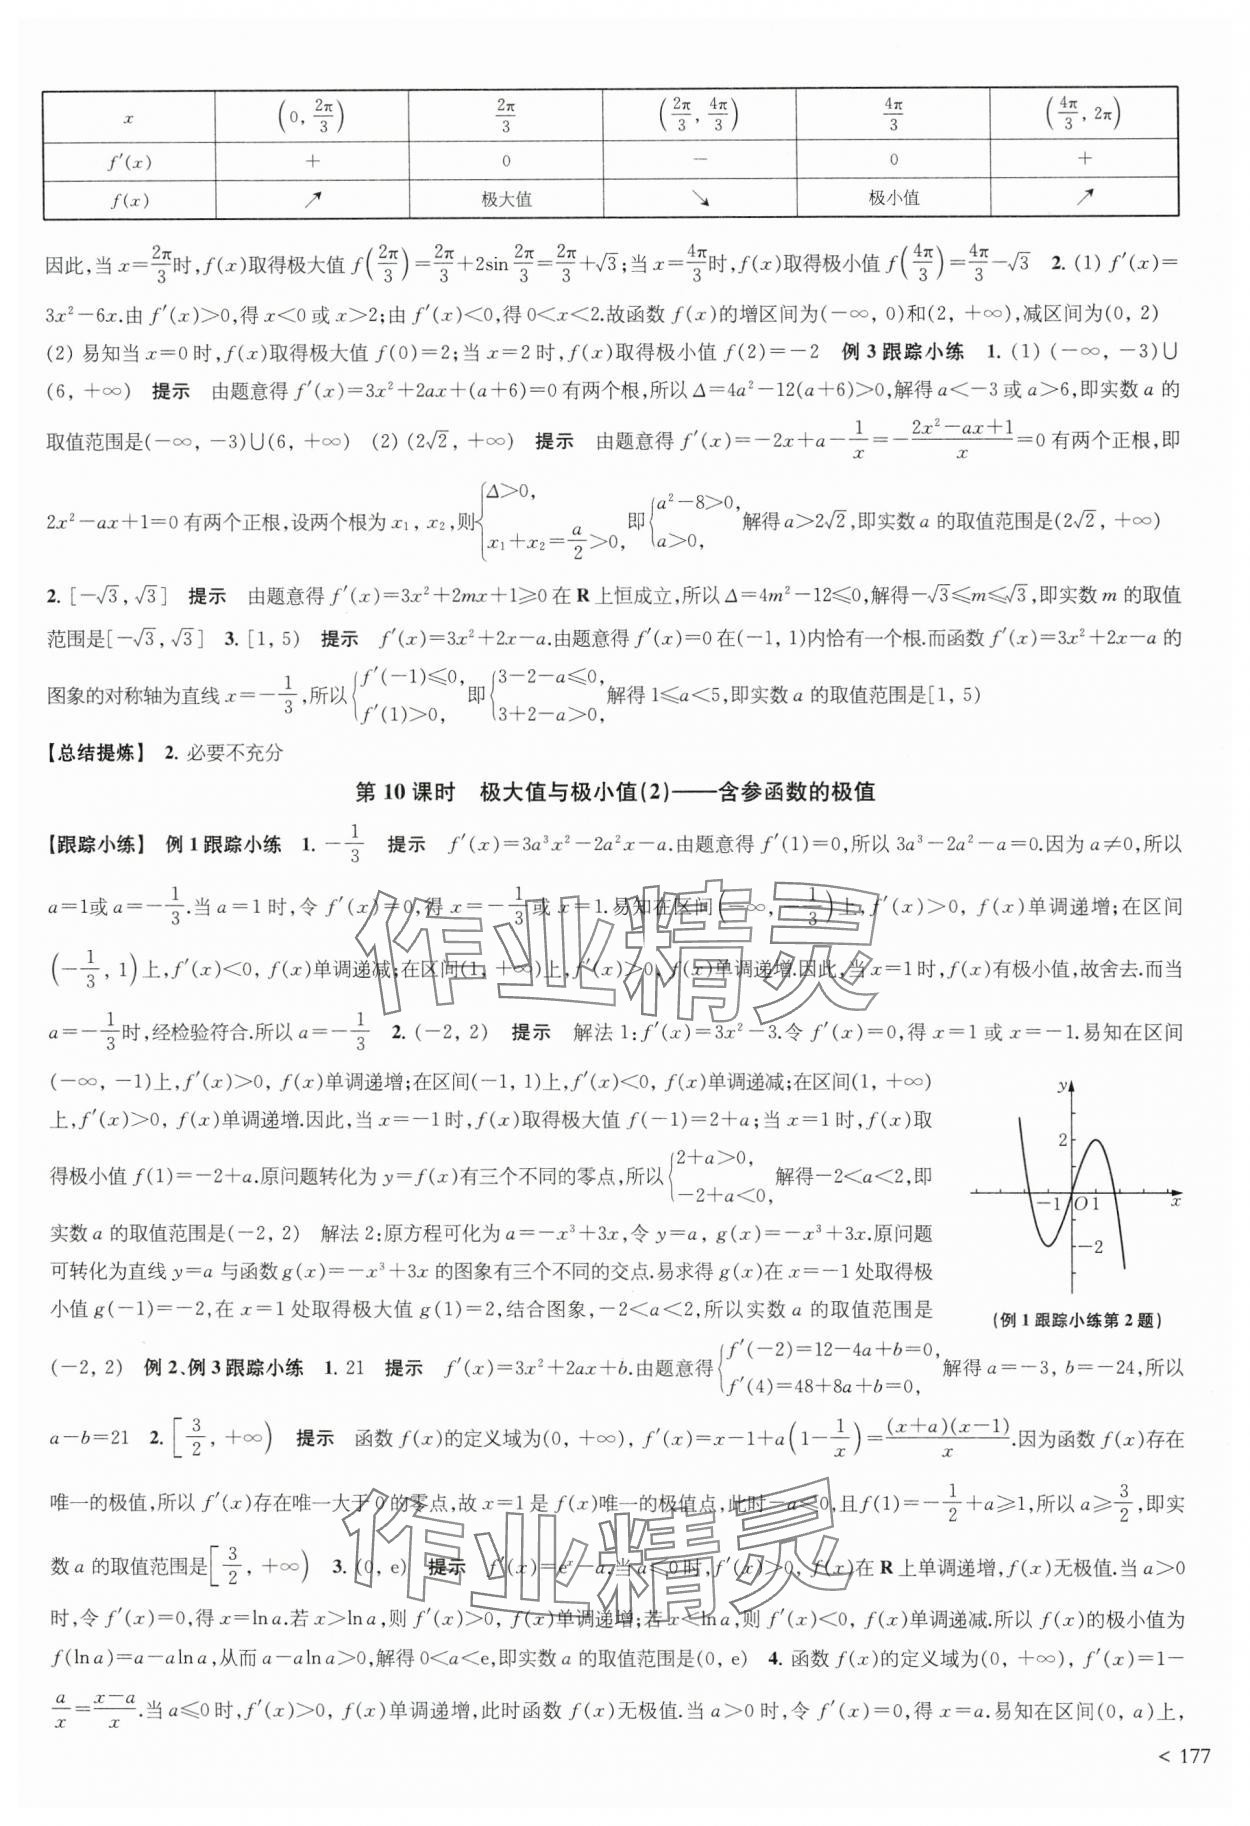 x (0, 2π/3) 2π/3 (2π/3, 4π/3) 4π/3 (4π/3, 2π)
f′(x) + 0 − 0 +
f(x) ↗ 极大值 ↘ 极小值 ↗
因此,当 x=2π/3时,f(x)取得极大值 f(2π/3)=2π/3+2sin 2π/3=2π/3+√3;当 x=4π/3时,f(x)取得极小值 f(4π/3)=4π/3−√3 2. (1) f′(x)=
3x²−6x.由 f′(x)>0,得 x<0 或 x>2;由 f′(x)<0,得 0<x<2.故函数 f(x)的增区间为(−∞, 0)和(2, +∞),减区间为(0, 2)
(2) 易知当 x=0 时,f(x)取得极大值 f(0)=2;当 x=2 时,f(x)取得极小值 f(2)=−2 例 3 跟踪小练 1. (1) (−∞, −3)∪
(6, +∞) 提示 由题意得 f′(x)=3x²+2ax+(a+6)=0 有两个根,所以 Δ=4a²−12(a+6)>0,解得 a<−3 或 a>6,即实数 a 的
取值范围是(−∞, −3)∪(6, +∞) (2) (2√2, +∞) 提示 由题意得 f′(x)=−2x+a−1/x=−(2x²−ax+1)/x=0 有两个正根,即
2x²−ax+1=0 有两个正根,设两个根为 x₁, x₂,则{Δ>0, x₁+x₂=a/2>0, 即{a²−8>0, a>0, 解得 a>2√2,即实数 a 的取值范围是(2√2, +∞)
2. [−√3, √3] 提示 由题意得 f′(x)=3x²+2mx+1⩾0 在 R 上恒成立,所以 Δ=4m²−12⩽0,解得−√3⩽m⩽√3,即实数 m 的取值
范围是[−√3, √3] 3. [1, 5) 提示 f′(x)=3x²+2x−a.由题意得 f′(x)=0 在(−1, 1)内恰有一个根.而函数 f′(x)=3x²+2x−a 的
图象的对称轴为直线 x=−1/3,所以{f′(−1)⩽0, f′(1)>0, 即{3−2−a⩽0, 3+2−a>0, 解得 1⩽a<5,即实数 a 的取值范围是[1, 5)
【总结提炼】 2. 必要不充分
第 10 课时 极大值与极小值(2)——含参函数的极值
【跟踪小练】 例 1 跟踪小练 1. −1/3 提示 f′(x)=3a³x²−2a²x−a.由题意得 f′(1)=0,所以 3a³−2a²−a=0.因为 a≠0,所以
a=1或 a=−1/3.当 a=1 时,令 f′(x)=0,得 x=−1/3或 x=1.易知在区间(−∞, −1/3)上,f′(x)>0, f(x)单调递增;在区间
(−1/3, 1)上,f′(x)<0, f(x)单调递减;在区间(1, +∞)上,f′(x)>0, f(x)单调递增.因此,当 x=1 时,f(x)有极小值,故舍去.而当
a=−1/3时,经检验符合.所以 a=−1/3 2. (−2, 2) 提示 解法 1:f′(x)=3x²−3.令 f′(x)=0,得 x=1 或 x=−1.易知在区间
(−∞, −1)上,f′(x)>0, f(x)单调递增;在区间(−1, 1)上,f′(x)<0, f(x)单调递减;在区间(1, +∞)
上,f′(x)>0, f(x)单调递增.因此,当 x=−1 时,f(x)取得极大值 f(−1)=2+a;当 x=1 时,f(x)取
得极小值 f(1)=−2+a.原问题转化为 y=f(x)有三个不同的零点,所以{2+a>0, −2+a<0, 解得−2<a<2,即
实数 a 的取值范围是(−2, 2) 解法 2:原方程可化为 a=−x³+3x,令 y=a, g(x)=−x³+3x.原问题
可转化为直线 y=a 与函数 g(x)=−x³+3x 的图象有三个不同的交点.易求得 g(x)在 x=−1 处取得极
小值 g(−1)=−2,在 x=1 处取得极大值 g(1)=2,结合图象,−2<a<2,所以实数 a 的取值范围是
y
2
−1 O 1 x
−2
(例 1 跟踪小练第 2 题)
(−2, 2) 例 2、例 3 跟踪小练 1. 21 提示 f′(x)=3x²+2ax+b.由题意得{f′(−2)=12−4a+b=0, f′(4)=48+8a+b=0, 解得 a=−3, b=−24,所以
a−b=21 2. [3/2, +∞) 提示 函数 f(x)的定义域为(0, +∞), f′(x)=x−1+a(1−1/x)=(x+a)(x−1)/x.因为函数 f(x)存在
唯一的极值,所以 f′(x)存在唯一大于 0 的零点,故 x=1 是 f(x)唯一的极值点,此时−a⩽0,且 f(1)=−1/2+a⩾1,所以 a⩾3/2,即实
数 a 的取值范围是[3/2, +∞) 3. (0, e) 提示 f′(x)=eˣ−a.当 a⩽0 时,f′(x)>0, f(x)在 R 上单调递增,f(x)无极值.当 a>0
时,令 f′(x)=0,得 x=ln a.若 x>ln a,则 f′(x)>0, f(x)单调递增;若 x<ln a,则 f′(x)<0, f(x)单调递减.所以 f(x)的极小值为
f(ln a)=a−aln a,从而 a−aln a>0,解得 0<a<e,即实数 a 的取值范围是(0, e) 4. 函数 f(x)的定义域为(0, +∞), f′(x)=1−
a/x=(x−a)/x.当 a⩽0 时,f′(x)>0, f(x)单调递增,此时函数 f(x)无极值.当 a>0 时,令 f′(x)=0,得 x=a.易知在区间(0, a)上,
< 177
作业精灵
作业精灵